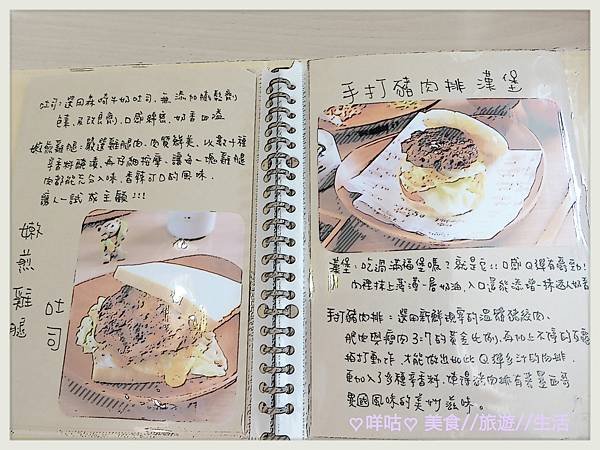 吐司：選用森崎牛奶吐司，無添加膨鬆劑
口感綿密，奶香四溢
嫩煎雞腿：嚴選雞腿肉，肉質鮮美，以數十種
辛香料醃漬，再仔細按摩，讓每一塊雞腿
肉都能充分入味，香辣可口的風味
讓人一試成主顧！！！
嫩煎雞腿
吐司
手打豬肉排 漢堡
漢堡：吃過滿福堡嗎？就是它！！口感Q彈有嚼勁！
內裡抹上薄薄一層奶油，入口還能添增一抹迷人奶香
手打豬肉排：選用新鮮現宰的溫體豬絞肉，
肥肉與瘦肉3:7的黃金比例，再加上不停的
拍打動作，才能做出如此Q彈多汁的肉排，
更加入了多種辛香料，使得豬肉擁有著墨西哥
異國風味的美妙滋味。
♡咩咕♡ 美食//旅遊//生活